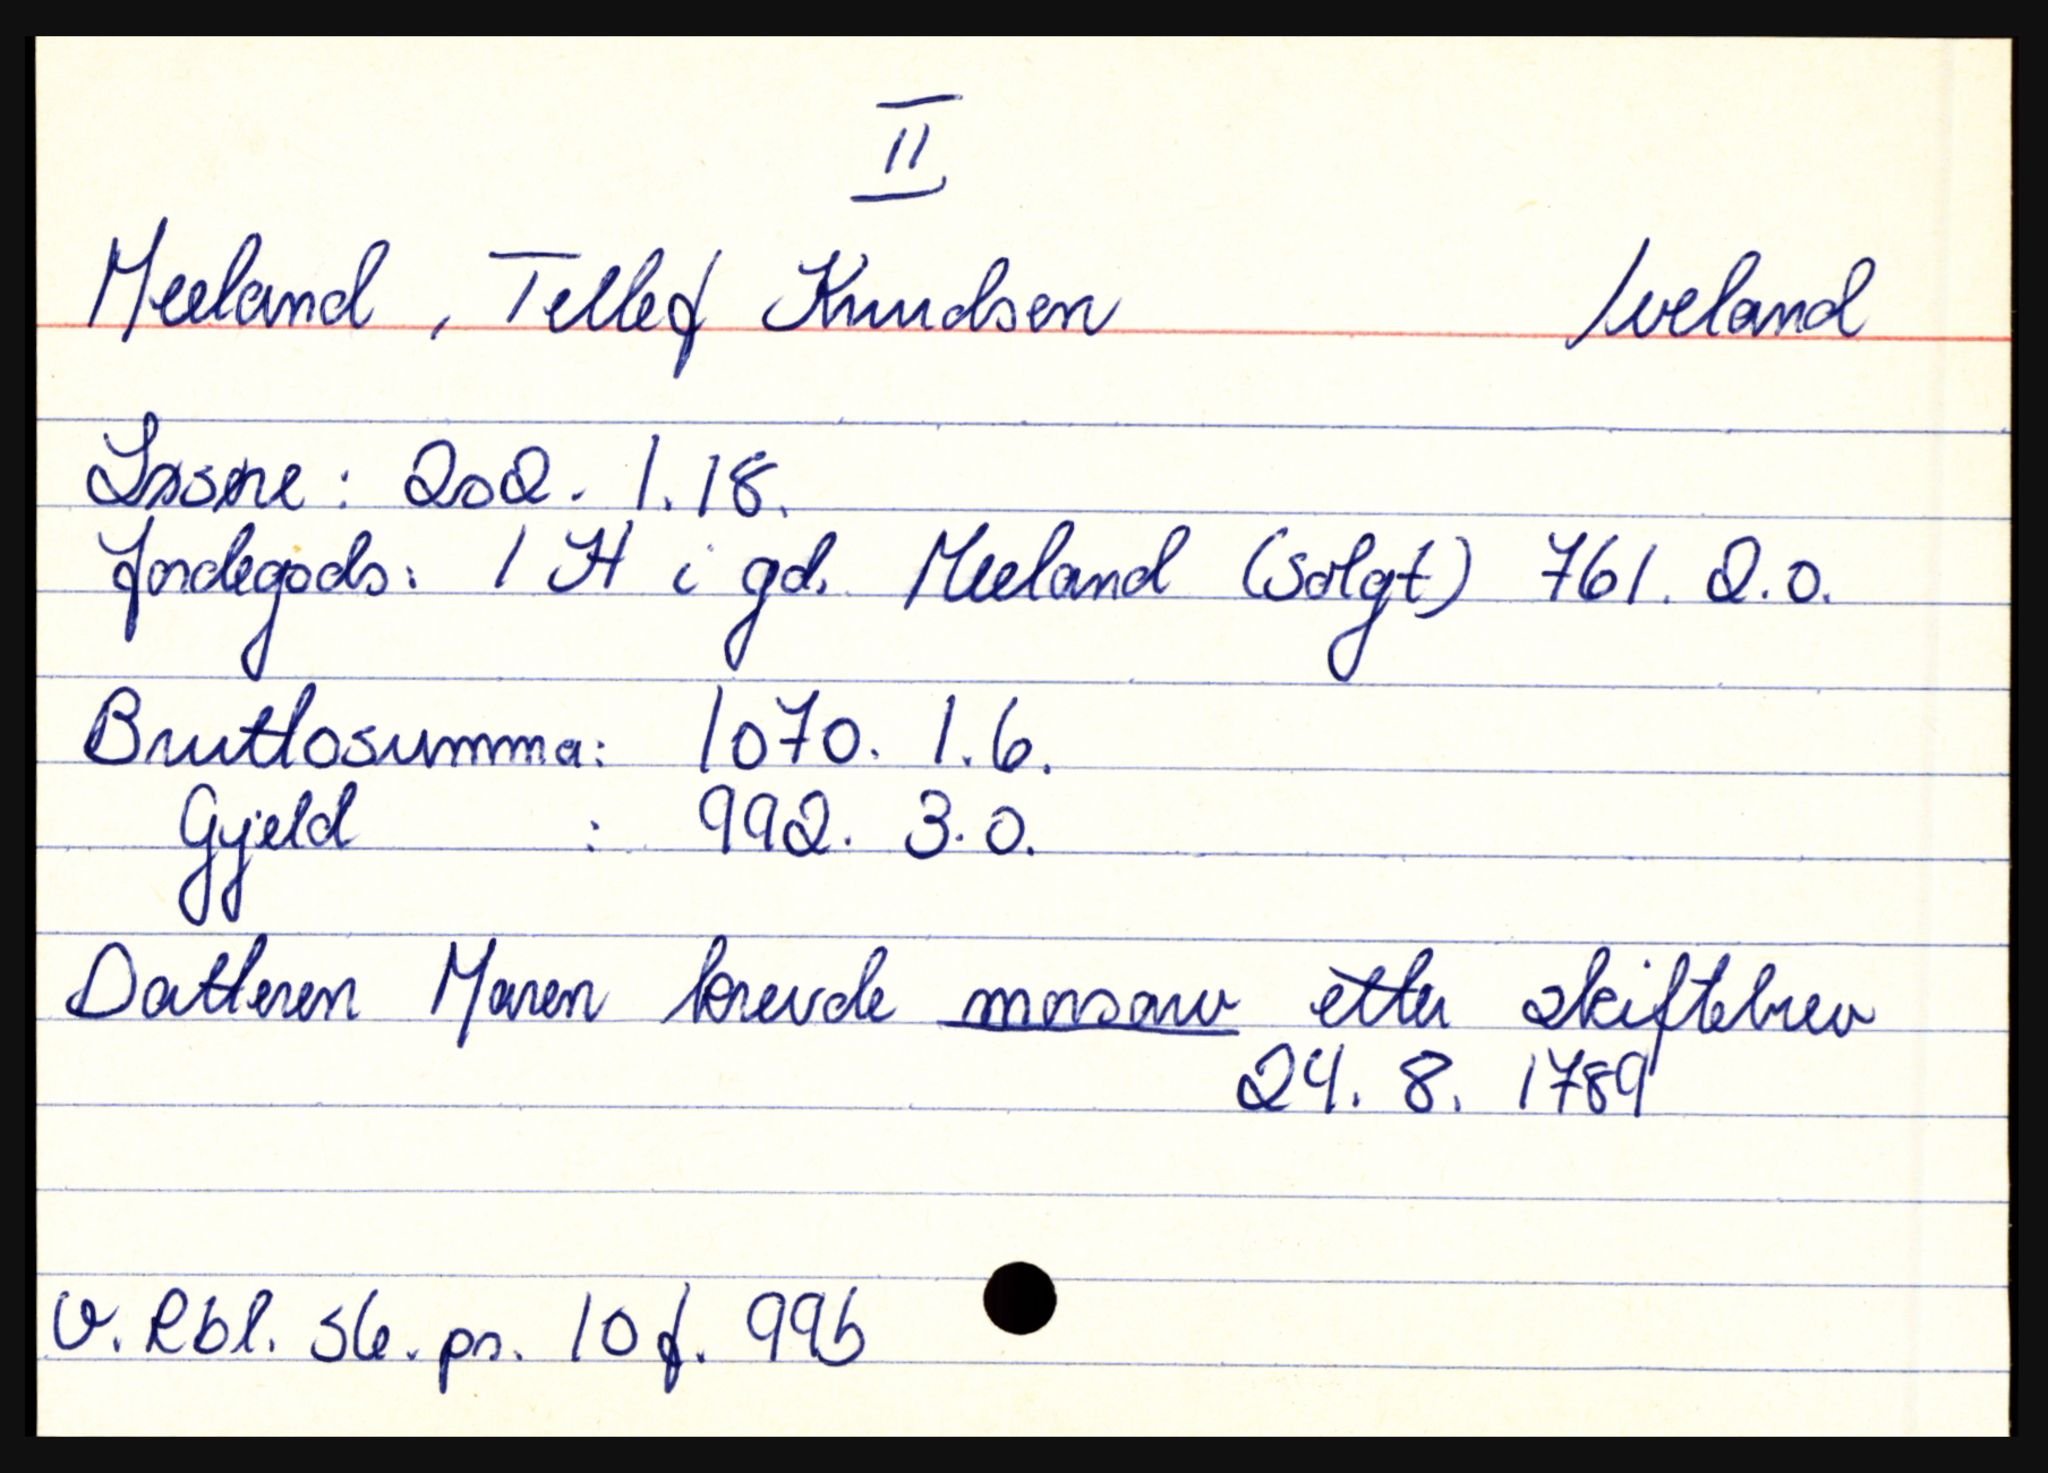 II
Meeland, Tellef Knudsen Iveland
Løsøre: 202. 1. 18.
Jordegods: 1 H i gd. Meeland (solgt) 761. 2. 0.
Bruttosumma: 1070. 1. 6.
Gjeld : 992. 3. 0.
Datteren Maren krevde morsarv etter skiftebrev
24. 8. 1789
V. Rbl. sk. pr. 10 f. 99b